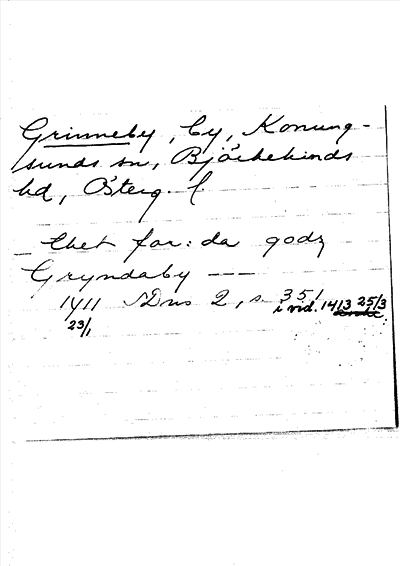 Grinneby, by, Konung-
sunds sn, Björkekinds
hd, Österg. l.
— thet for:da godz
Gryndaby — — —
1411 SDns 2, s. 351
23/1 i vid. 1413 25/3